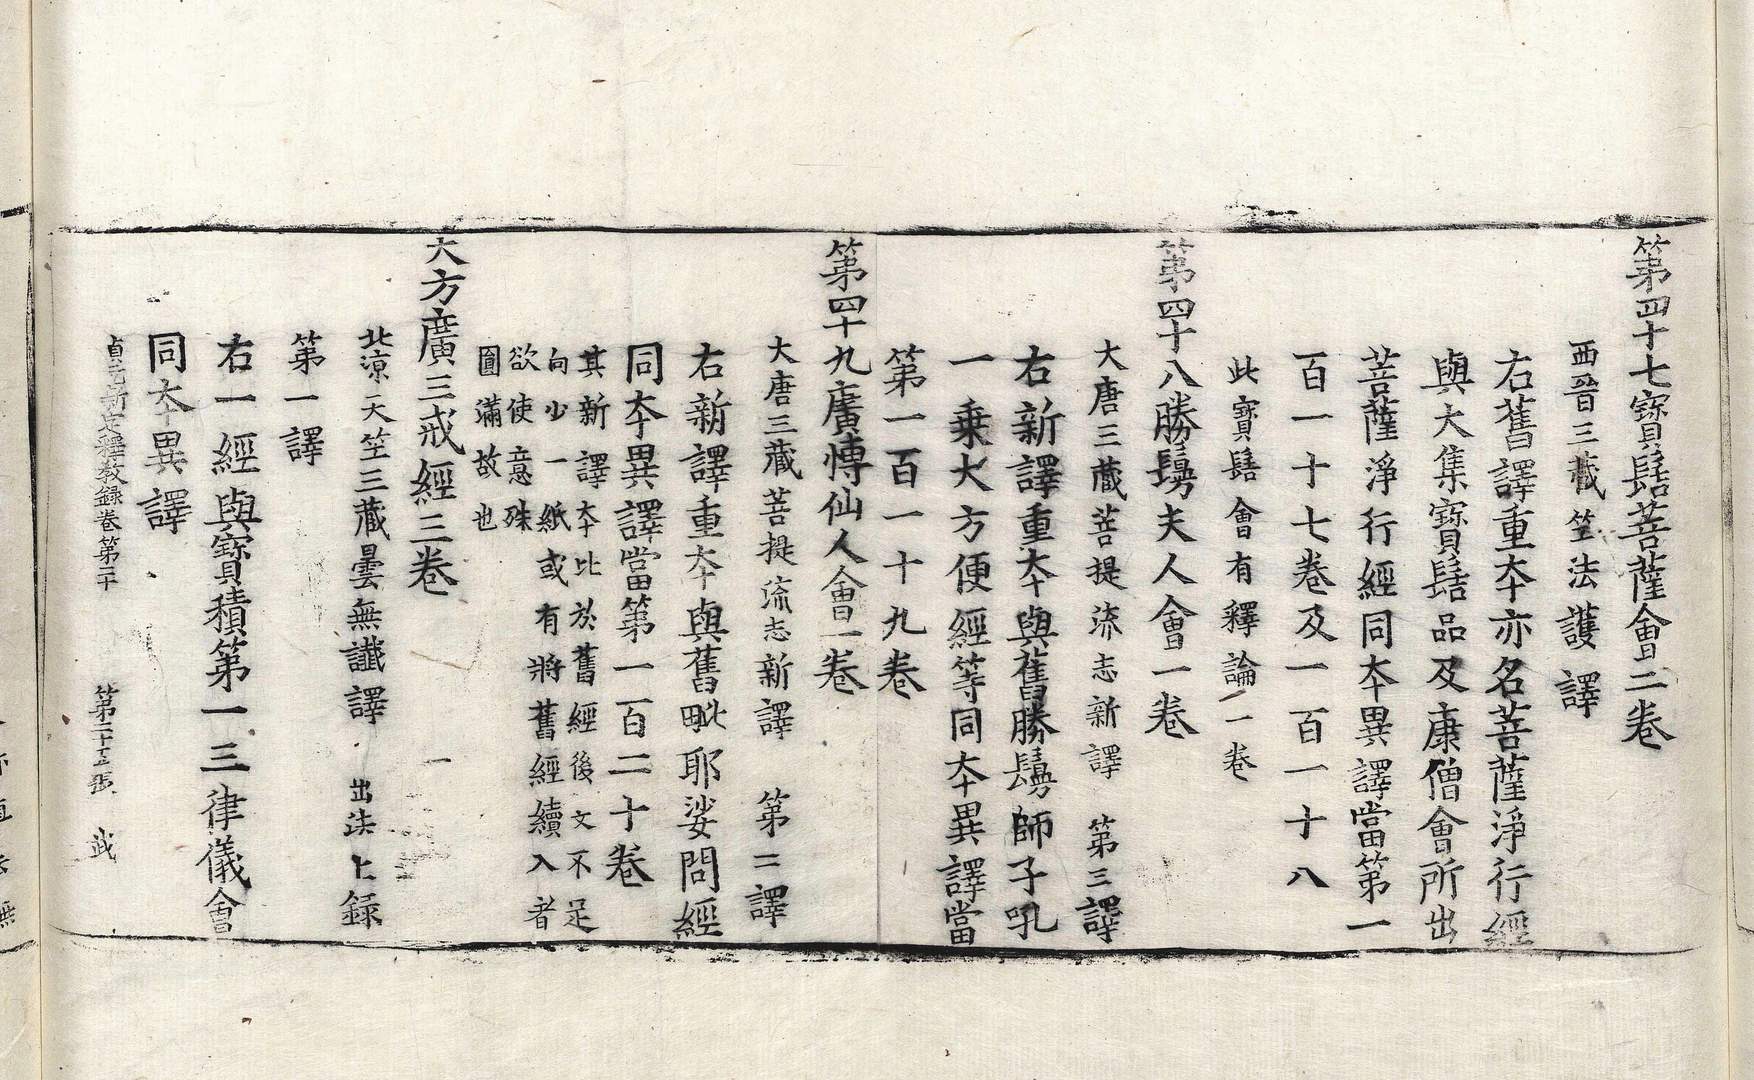 第四十七寶髻菩薩會二卷
西晉三藏竺法護譯
右舊譯重夲亦名菩薩淨行經
與大集寶髻品及康僧會所出
菩薩淨行經同夲異譯當第一
百一十七卷及一百一十八
此寶髻會有釋論一卷
第四十八勝鬘夫人會一卷
大唐三藏菩提流志新譯 第三譯
右新譯重夲與舊勝鬘師子吼
一乗大方便經等同夲異譯當
第一百一十九卷
第四十九廣博仙人會一卷
大唐三藏菩提流志新譯 第二譯
右新譯重夲與舊毗耶娑問經
同夲異譯當第一百二十卷
其新譯夲比於舊經後文不足
向少一紙或有將舊經續入者
欲使意殊
圓滿故也
大方廣三戒經三卷
北涼天竺三藏曇無讖譯 出法上録
第一譯
右一經與寶積第一三律儀會
同夲異譯
貞元新定釋教録卷第二十 第二十五張 武